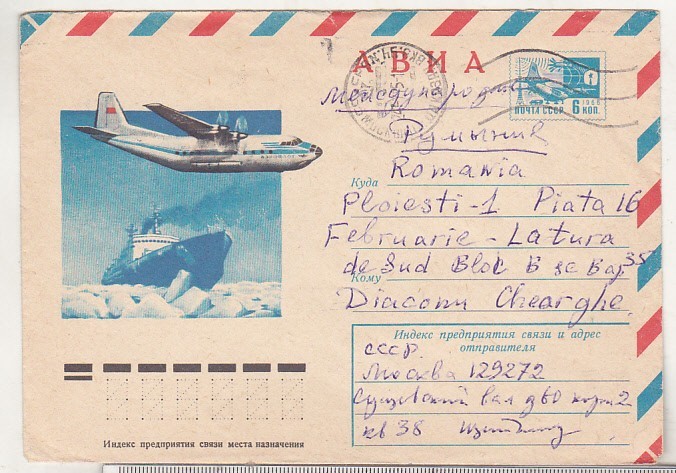 АВИА
Международное
ПОЧТА СССР 6 КОП.
1966
Румыния
Romania
Куда
Ploiesti-1 Piata 16
Februarie - Latura
de Sud Bloc B sc B ap 35
Кому
Diaconu Gheorghe
Индекс предприятия связи и адрес
отправителя
СССР
Москва 129272
Сущевский вал д 60 корп 2
кв 38
Индекс предприятия связи места назначения